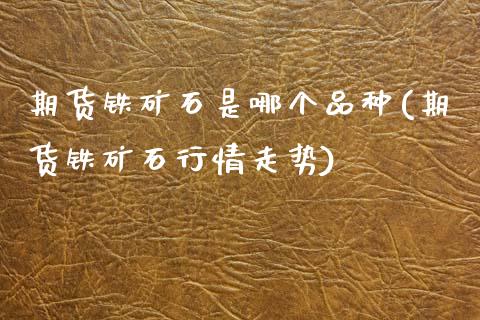 期货铁矿石是哪个品种(期
货铁矿石行情走势)